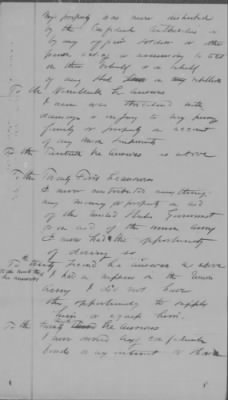 My property was never disturbed
by the Confederate Authorities or
by any officer soldier or other
person acting or assuming to act
on their behalf or in behalf
of any
To the Nineteenth he answers
I never was threatened with
damage or injury to my person
family or property on account
of my Union Sentiments
To the Twentieth he answers as above
To the Twenty First he answers
I never contributed anything
any money or property in aid
of the United States Government
or in aid of the Union Army
I never had the opportunity
of doing so
To the twenty second he answers as above
To the twenty third he answers
I had a nephew in the Union
Army I did not have
the opportunity to supply
him or equip him.
To the twenty he answers
I never owned any confederate
bonds or any interest or share